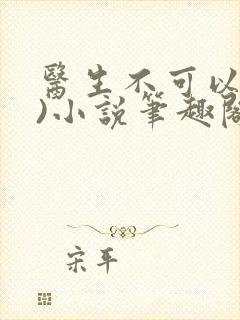 醫生不可以
)小說筆趣閣
宋平